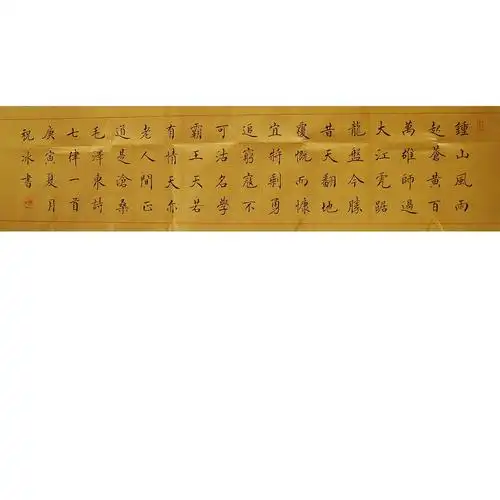 鍾山風雨
起蒼黃百
萬雄師過
大江虎踞
龍盤今勝
昔天翻地
覆慨而慷
宜將剩勇
追窮寇不
可沽名學
霸王天若
有情天亦
老人間正
道是滄桑
毛澤東詩
七律一首
庚寅夏月
祝冰書